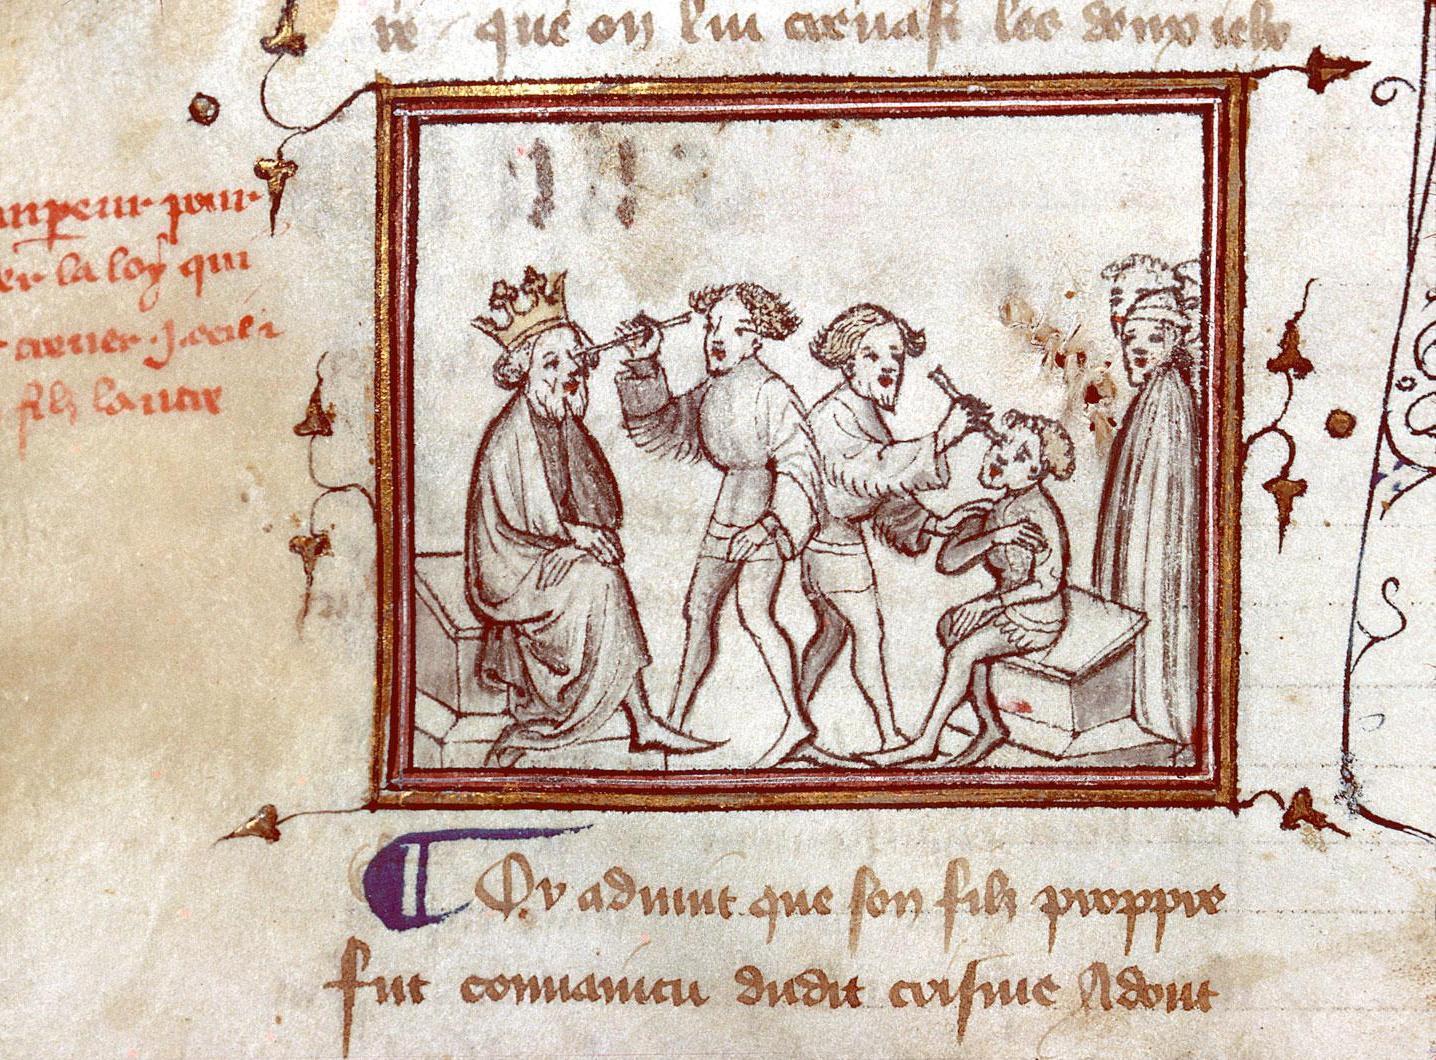 re que on lui creuast les deux ielx
empereur pour
er la loy qui
creuer j oeil a
filz lautre
Or aduint que son filz proppre
fut conuaincu dudit crisme Adont